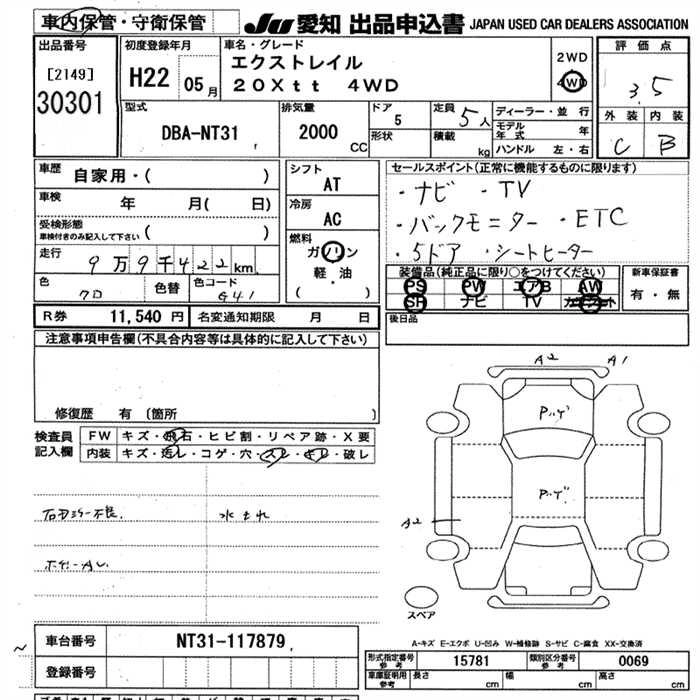 車内保管・守衛保管
JU 愛知 出品申込書 JAPAN USED CAR DEALERS ASSOCIATION
出品番号
[2149]
30301
初度登録年月
H22 05月
車名・グレード
エクストレイル
20Xtt 4WD
2WD
4WD
評価点
3.5
外装 内装
C B
型式
DBA-NT31
排気量
2000 CC
ドア
5
形状
定員 5人
積載 kg
ディーラー・並行
モデル年式 年
ハンドル 左・右
車歴 自家用・( )
車検 年 月( 日)
受検形態
車検付きのみ記入して下さい ( )
走行 9万9千422km
色 クロ 色替 色コード G41
シフト
AT
冷房
AC
燃料
ガソリン
軽・油
( )
セールスポイント(正常に機能するものに限ります)
・ナビ ・TV
・バックモニター ・ETC
・5ドア ・シートヒーター
装備品(純正品に限り○をつけてください)
PS PW エアB AW
SR ナビ TV カセット
新車保証書
有・無
R券 11,540円 名変通知期限 月 日
後日品
注意事項申告欄(不具合内容等は具体的に記入して下さい)
修復歴 有 〔箇所 〕
検査員
記入欄
FW キズ・飛石・ヒビ割・リペア跡・X要
内装 キズ・汚レ・コゲ・穴・スレ・キレ・破レ
水もれ
A2 A1
A2
スペア
A-キズ E-エクボ U-凹み W-補修跡 S-サビ C-腐食 XX-交換済
車台番号 NT31-117879
登録番号
形式指定番号
参考
15781
類別区分番号
参考
0069
車庫証明用
参考
長さ cm 幅 cm 高さ cm